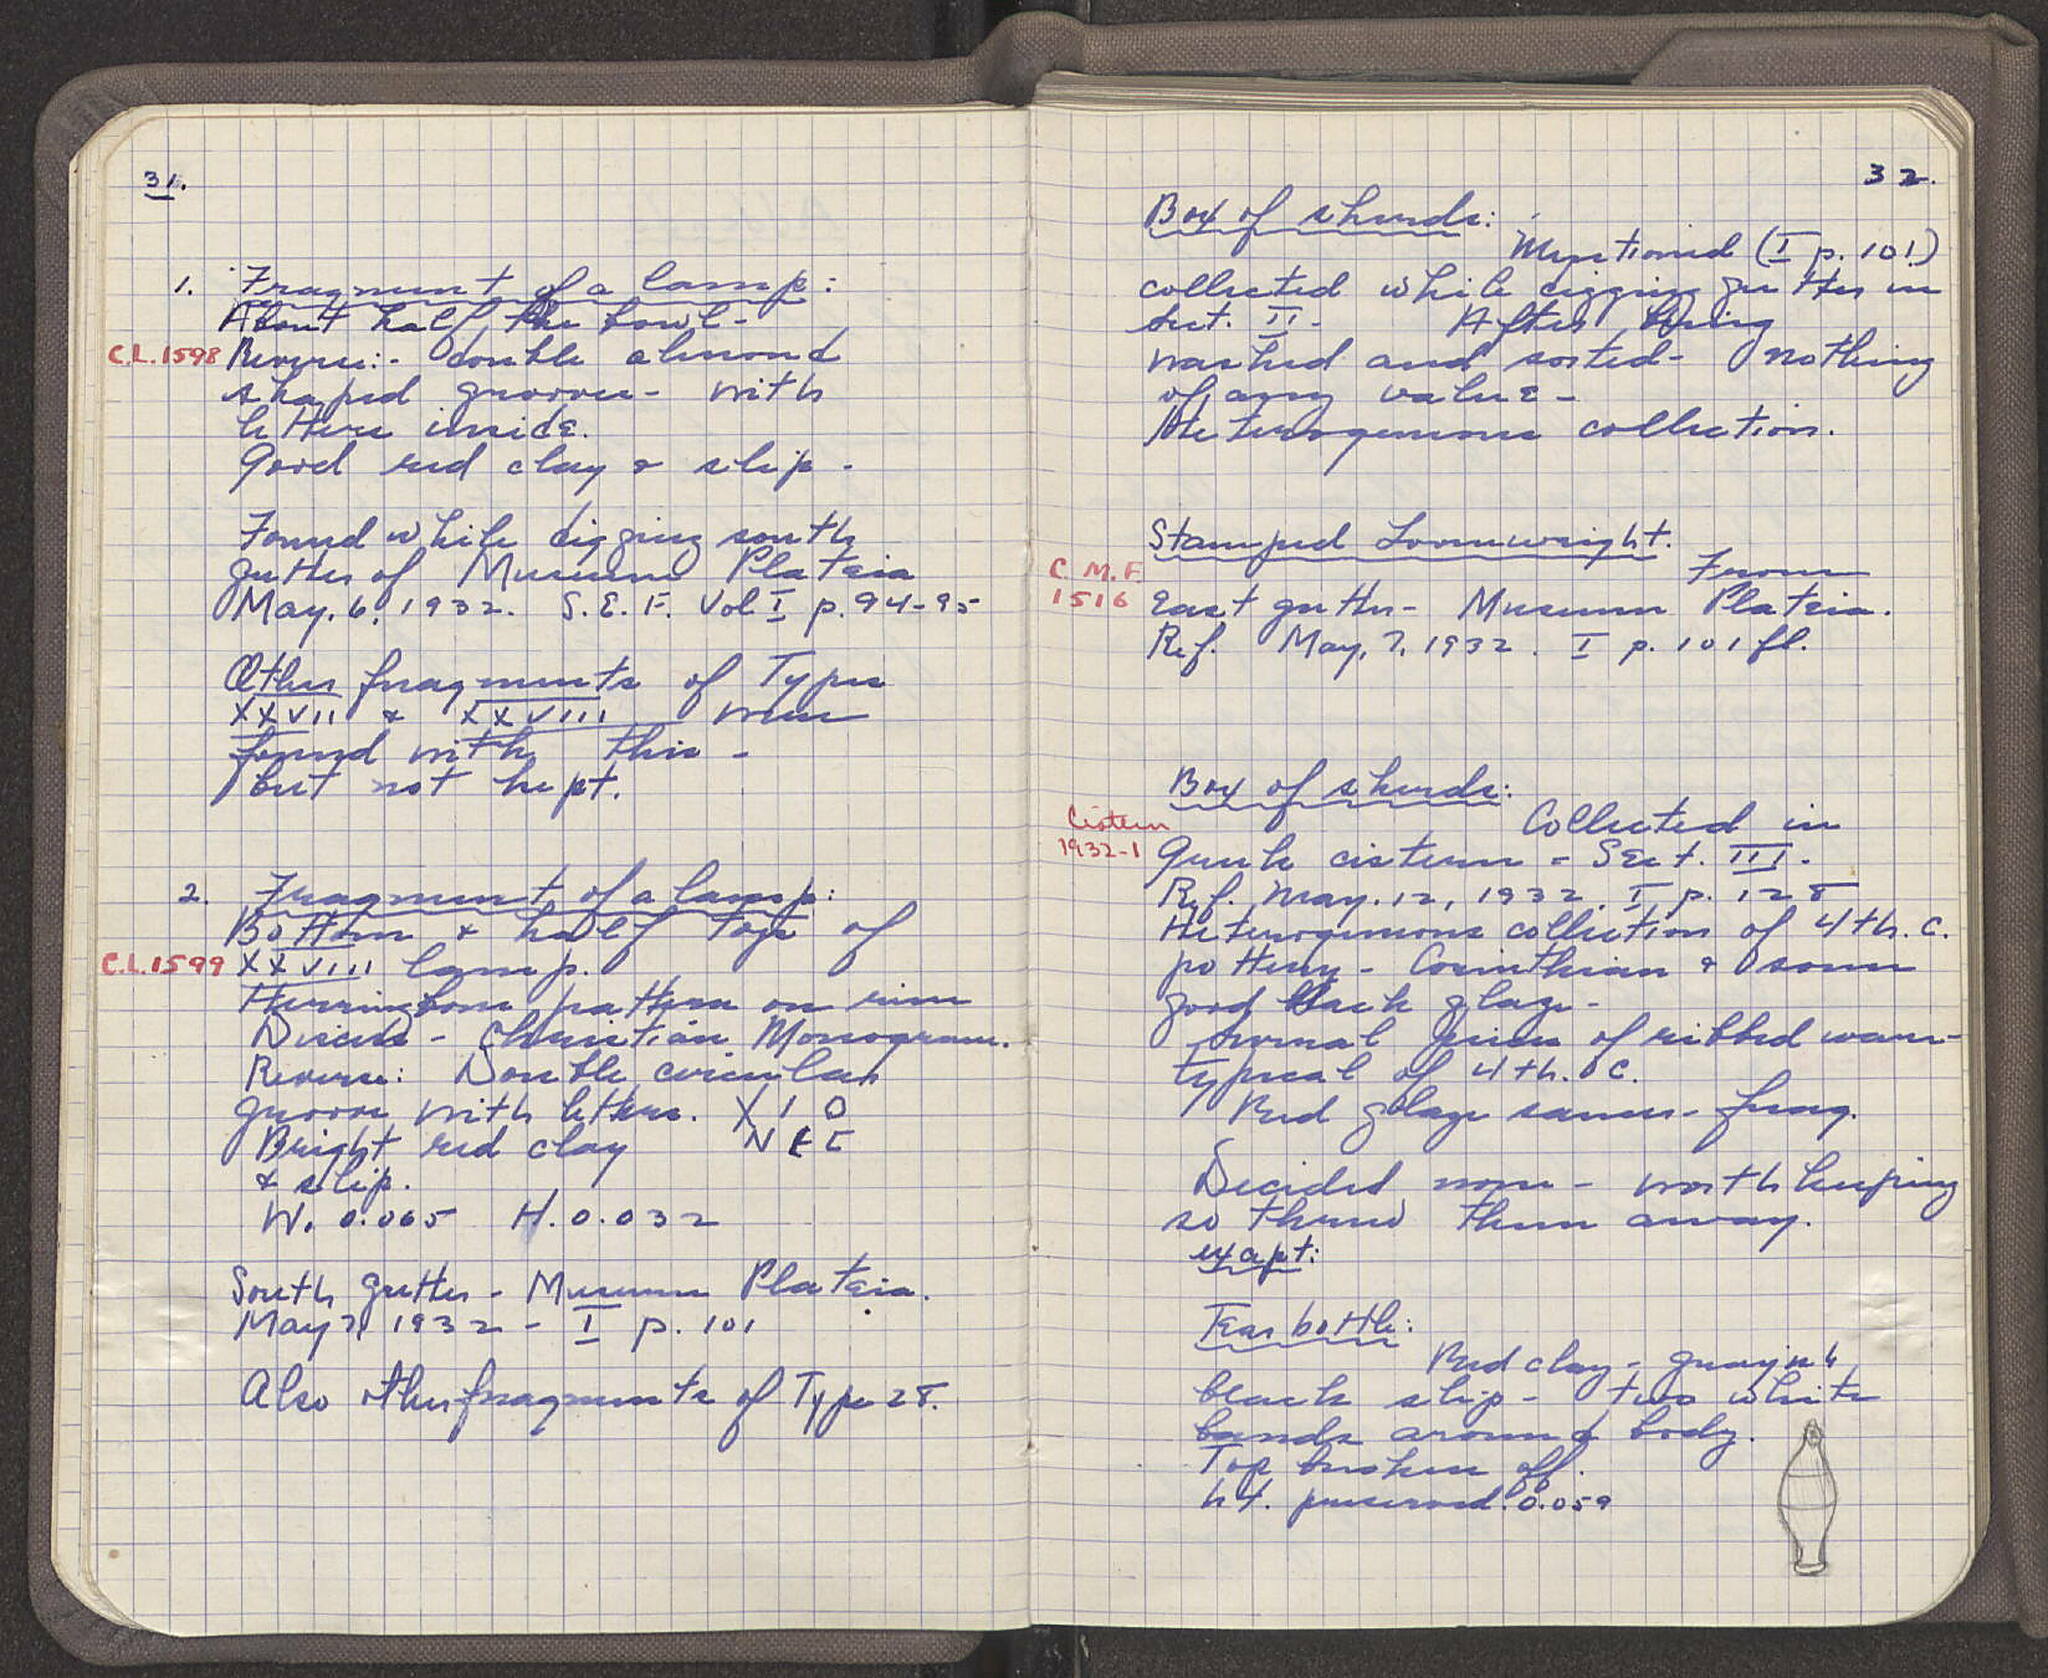 31.
1. Fragment of a lamp:
About half the bowl-
C.L. 1598 Reverse:- double almond
shaped groove- with
letters inside.
Good red clay & slip -
Found while digging south
gutter of Museum Plateia
May. 6, 1932. S.E.F. Vol I p. 94-95
Other fragments of Types
XXVII & XXVIII were
found with this -
but not kept.
2. Fragment of a lamp:
Bottom & half top of
C.L. 1599 XXVIII lamp.
Herringbone pattern on rim
Discus - Christian Monogram.
Reverse: Double circular
groove with letters. X I O
Bright red clay N E C
& slip.
W. 0.065 H. 0.032
South gutter - Museum Plateia.
May 7, 1932 - I p. 101
Also other fragments of Type 28.
32.
Box of sherds:
Mentioned (I p. 101)
collected while digging gutter in
Sect. II - After being
washed and sorted - nothing
of any value -
Heterogenous collection.
Stamped Loomweight.
From
C. M. F.
1516 East gutter - Museum Plateia.
Ref. May. 7, 1932. I p. 101 ff.
Box of sherds:
Collected in
Cistern
1932-1 Greek cistern - Sect. III.
Ref. May. 12, 1932. I p. 128
Heterogenous collection of 4th. C.
pottery - Corinthian & some
good black glaze -
Several pieces of ribbed ware -
typical of 4th. C.
Red glaze saucer - frag.
Decided none - worth keeping
so threw them away.
exept:
Tear bottle:
Red clay - grayish
black slip - two white
bands around body.
Top broken off.
ht. preserved. 0.059